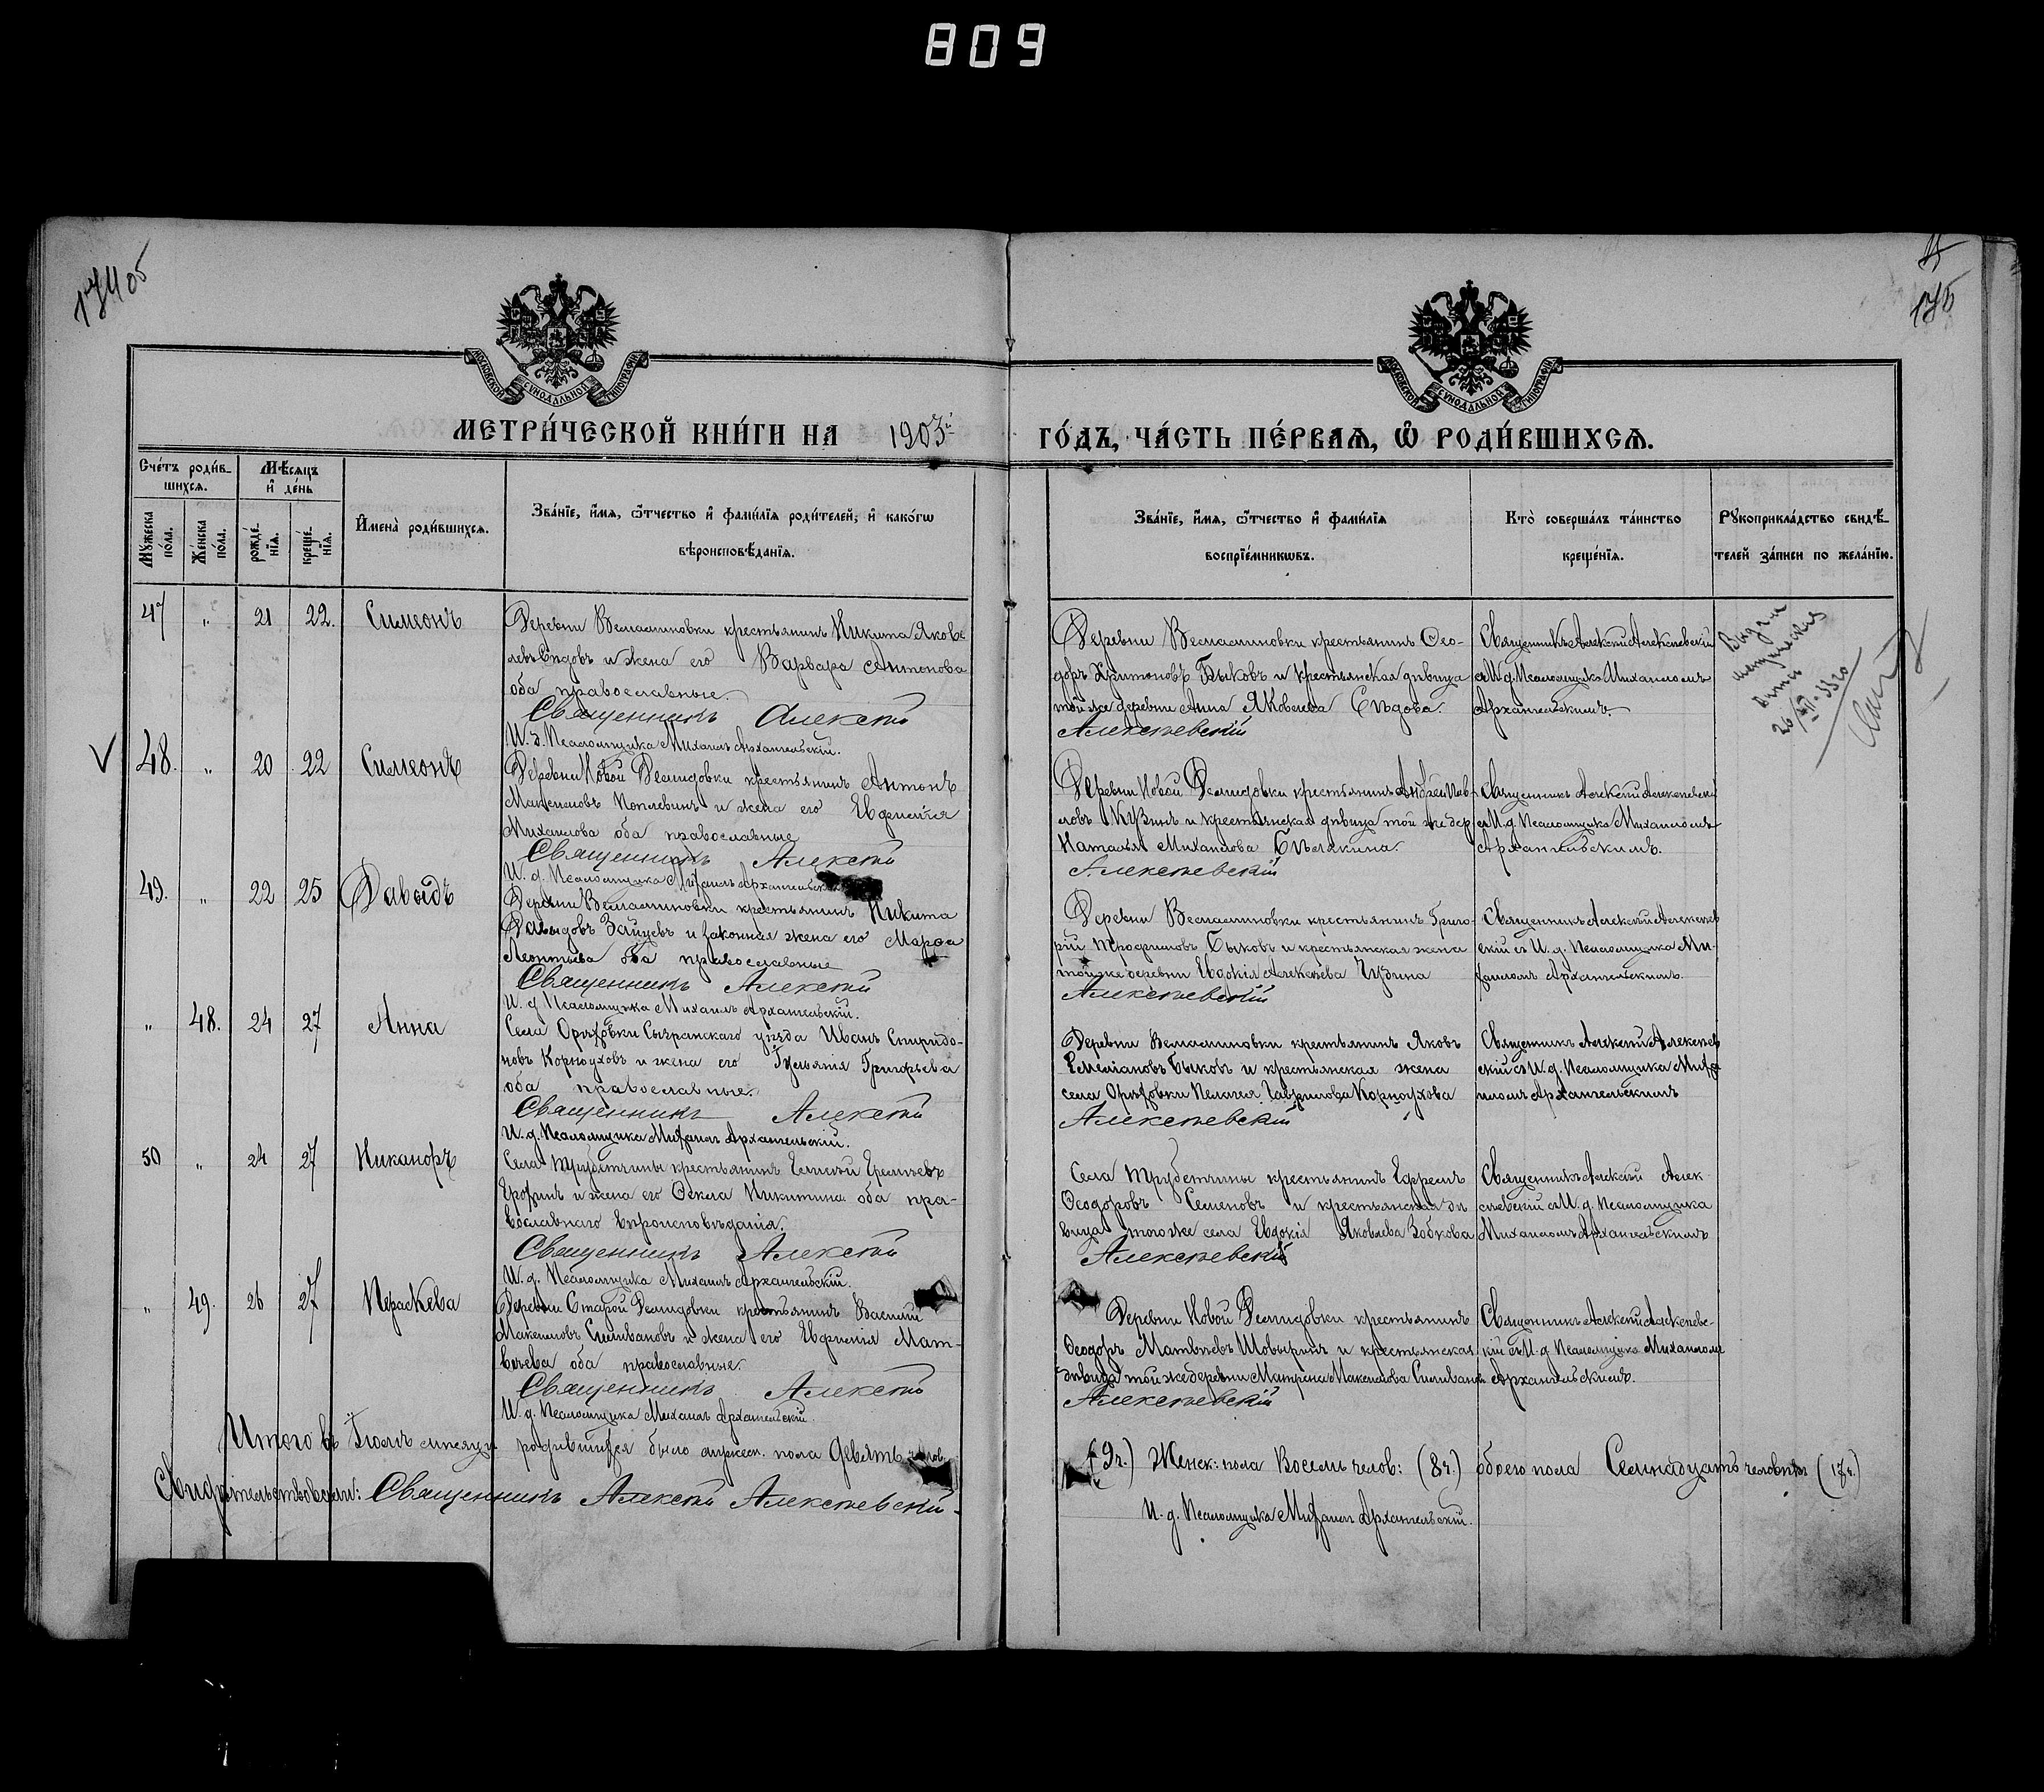 809
174 об
175
МОСКОВСКОЙ СУНОДАЛЬНОЙ ТИПОГРАФІИ
МОСКОВСКОЙ СУНОДАЛЬНОЙ ТИПОГРАФІИ
МЕТРИ́ЧЕСКОЙ КНИ́ГИ НА 1903й ГО́ДЪ, ЧА́СТЬ ПЕ́РВАѦ, Ѡ РОДИ́ВШИХСѦ.
Сче́тъ роди́в-
шихсѧ.
Мꙋ́жеска по́ла.
Же́нска по́ла.
Мѣ́сяцъ
и҆ де́нь
рожде́-
нїѧ.
креще́-
нїѧ.
И҆мена̀ роди́вшихсѧ.
Зва́нїе, и҆́мѧ, ѻ҆́тчество и҆ фами́лїѧ роди́телей, и҆ како́гѡ
вѣроисповѣ́данїѧ.
Зва́нїе, и҆́мѧ, ѻ҆́тчество и҆ фами́лїѧ
воспрїе́мникѡвъ.
Кто̀ соверша́лъ та́инство
креще́нїѧ.
Рꙋкоприкла́дство свидѣ́-
телей за́писи по жела́нїю.
47 " 21 22. Симеонъ
Деревни крестьянинъ Никита Яков
левъ Сѣдовъ и жена его Варвара Антонова
оба православные.
Священникъ Алексѣй
И. д. Псаломщика Михаилъ Архангельскій.
Деревни крестьянинъ Ѳео-
доръ Быковъ и крестьянская дѣвица
той же деревни Анна Яковлева Сѣдова.
Алексѣевскій
Священникъ Алексій Алексѣевскій
съ И. д. Псаломщика Михаиломъ
Архангельскимъ.
Выдана
метрическая
26/XII-33 го
48. " 20 22 Симеонъ
Деревни Новой Демидовки крестьянинъ Антонъ
Максимовъ и жена его Евфимія
Михаилова оба православные
Священникъ Алексѣй
И. д. Псаломщика Михаилъ Архангельскій
Деревни Новой Демидовки крестьянинъ Андрей Пав-
ловъ Кузинъ и крестьянская дѣвица той же дер
Наталья Михаилова Бѣлякина.
Алексѣевскій
Священникъ Алексій Алексѣевскій
съ И. д. Псаломщика Михаиломъ
Архангельскимъ.
49. " 22 25 Давыдъ
Деревни крестьянинъ Никита
Давыдовъ Зайцевъ и законная жена его Марѳа
Леонтьева оба православные
Священникъ Алексѣй
И. д. Псаломщика Михаилъ Архангельскій.
Деревни крестьянинъ Григо-
рій Трофимовъ Быковъ и крестьянская жена
той же деревни Евдокія Алексѣева
Алексѣевскій
Священникъ Алексій Алексѣев
скій съ И. д. Псаломщика Ми-
хаиломъ Архангельскимъ.
" 48. 24 27 Анна
Села Орѣховки Сызранскаго уѣзда Иванъ Спиридо-
новъ Корноуховъ и жена его Григорьева
оба православные.
Священникъ Алексѣй
И. д. Псаломщика Михаилъ Архангельскій.
Деревни крестьянинъ Яковъ
Емеліановъ Быковъ и крестьянская жена
села Орѣховки Пелагея Гаврилова Корноухова
Алексѣевскій
Священникъ Алексій Алексѣев
скій съ И. д. Псаломщика Миха
иломъ Архангельскимъ
50 " 24 27 Никаноръ
Села Трубетчины крестьянинъ
и жена его Ѳекла Никитина оба пра-
вославнаго вѣроисповѣданія.
Священникъ Алексѣй
И. д. Псаломщика Михаилъ Архангельскій.
Села Трубетчины крестьянинъ Ефремъ
Ѳеодоровъ Семеновъ и крестьянская дѣ
вица того же села Евдокія Яковлева Зобкова
Алексѣевскій
Священникъ Алексій Алек-
сѣевскій съ И. д. Псаломщика
Михаиломъ Архангельскимъ
" 49. 26 27 Параскева
Деревни Старой Демидовки крестьянинъ Василій
Максимовъ Силивановъ и жена его Евфимія Мат-
вѣева оба православные.
Священникъ Алексѣй
И. д. Псаломщика Михаилъ Архангельскій.
Деревни Новой Демидовки крестьянинъ
Ѳеодоръ Матвѣевъ и крестьянская
дѣвица той же деревни Матрена Максимова
Алексѣевскій
Священникъ Алексій Алексѣевс-
кій съ И. д. Псаломщика Михаиломъ
Архангельскимъ.
Итого въ Іюлѣ мѣсяцѣ родившихся было мужеск. пола девять челов. (9 ч.) Женск: пола Восемь челов: (8 ч.) обоего пола Семнадцать человѣкъ (17 ч.)
Свидѣтельствовали: Священникъ Алексѣй Алексѣевскій.
И. д. Псаломщика Михаилъ Архангельскій.